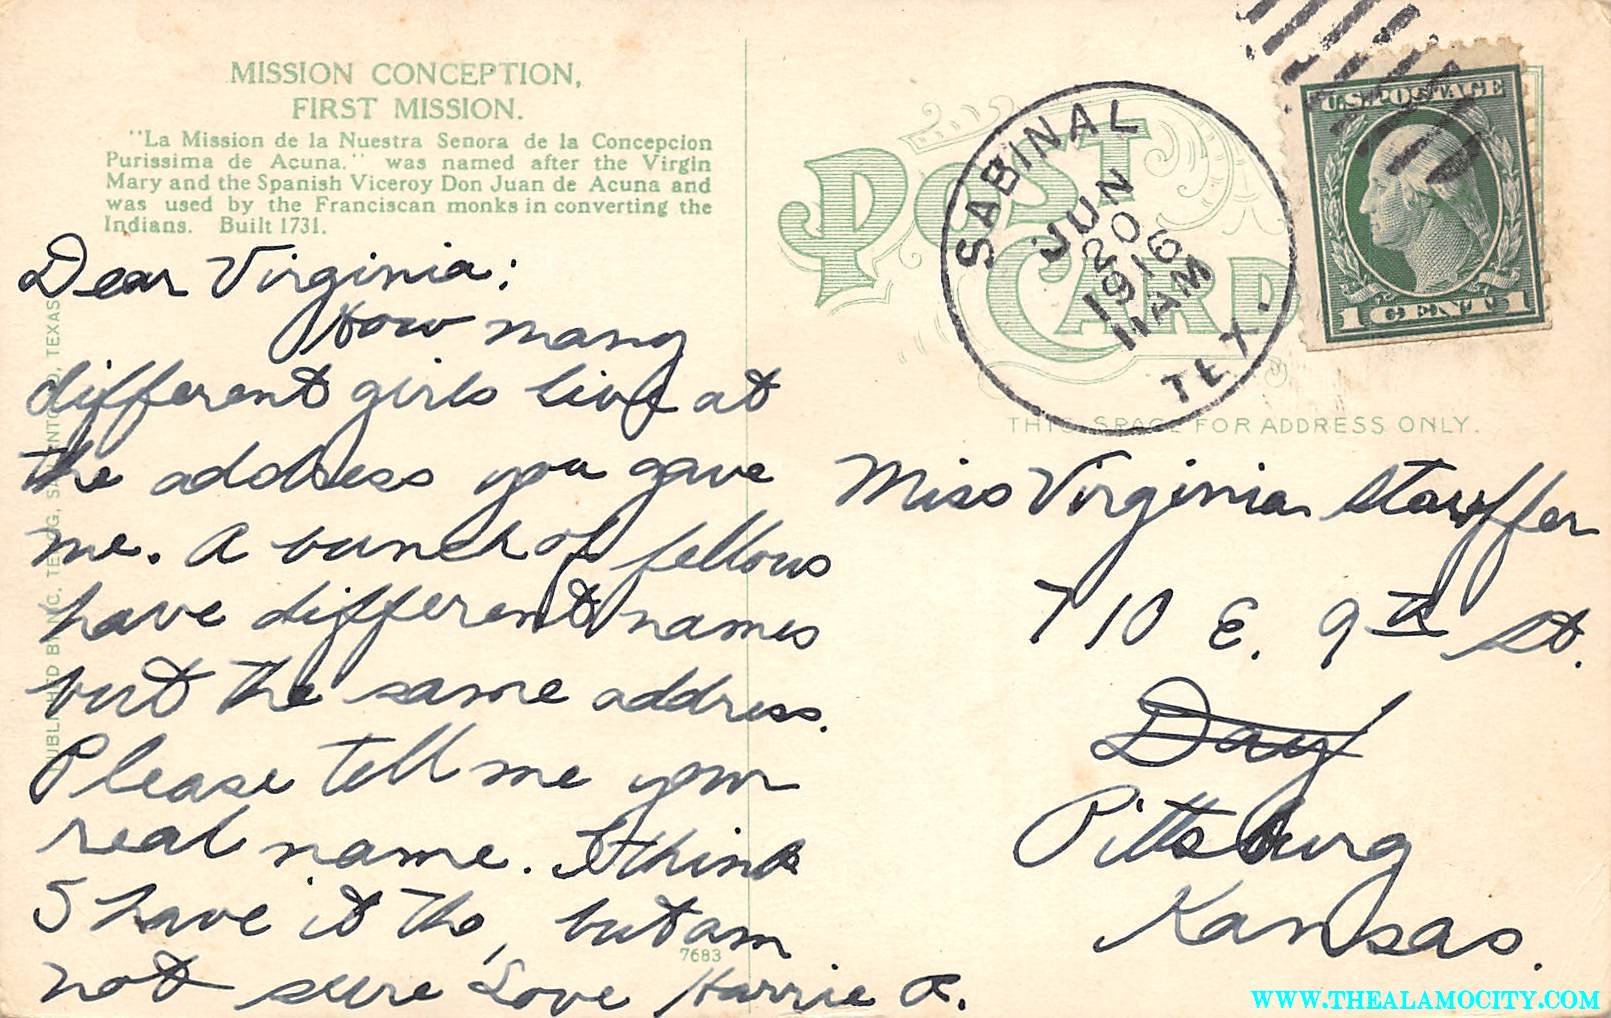 MISSION CONCEPTION,
FIRST MISSION.
"La Mission de la Nuestra Senora de la Concepcion
Purissima de Acuna." was named after the Virgin
Mary and the Spanish Viceroy Don Juan de Acuna and
was used by the Franciscan monks in converting the
Indians. Built 1731.
Dear Virginia:
How many
different girls live at
the address you gave
me. A bunch of fellows
have different names
but the same address.
Please tell me your
real name. I think
I have it tho, but am
not sure Love Harrie R.
7683
POST
CARD
SABINAL
JUN
20
1916
11 AM
TEX.
U.S. POSTAGE
1 CENT 1
THIS SPACE FOR ADDRESS ONLY.
Miss Virginia Stauffer
710 E. 9th St.
Day
Pittsburg
Kansas.
WWW.THEALAMOCITY.COM